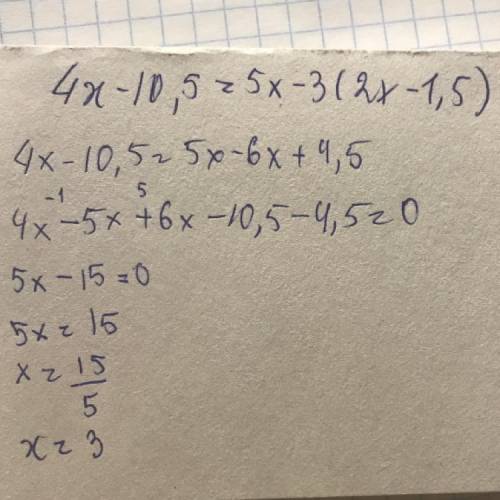 4x - 10,5 = 5x - 3(2x - 1,5)
4x - 10,5 = 5x - 6x + 4,5
-1 5
4x - 5x + 6x - 10,5 - 4,5 = 0
5x - 15 = 0
5x = 15
x = 15/5
x = 3